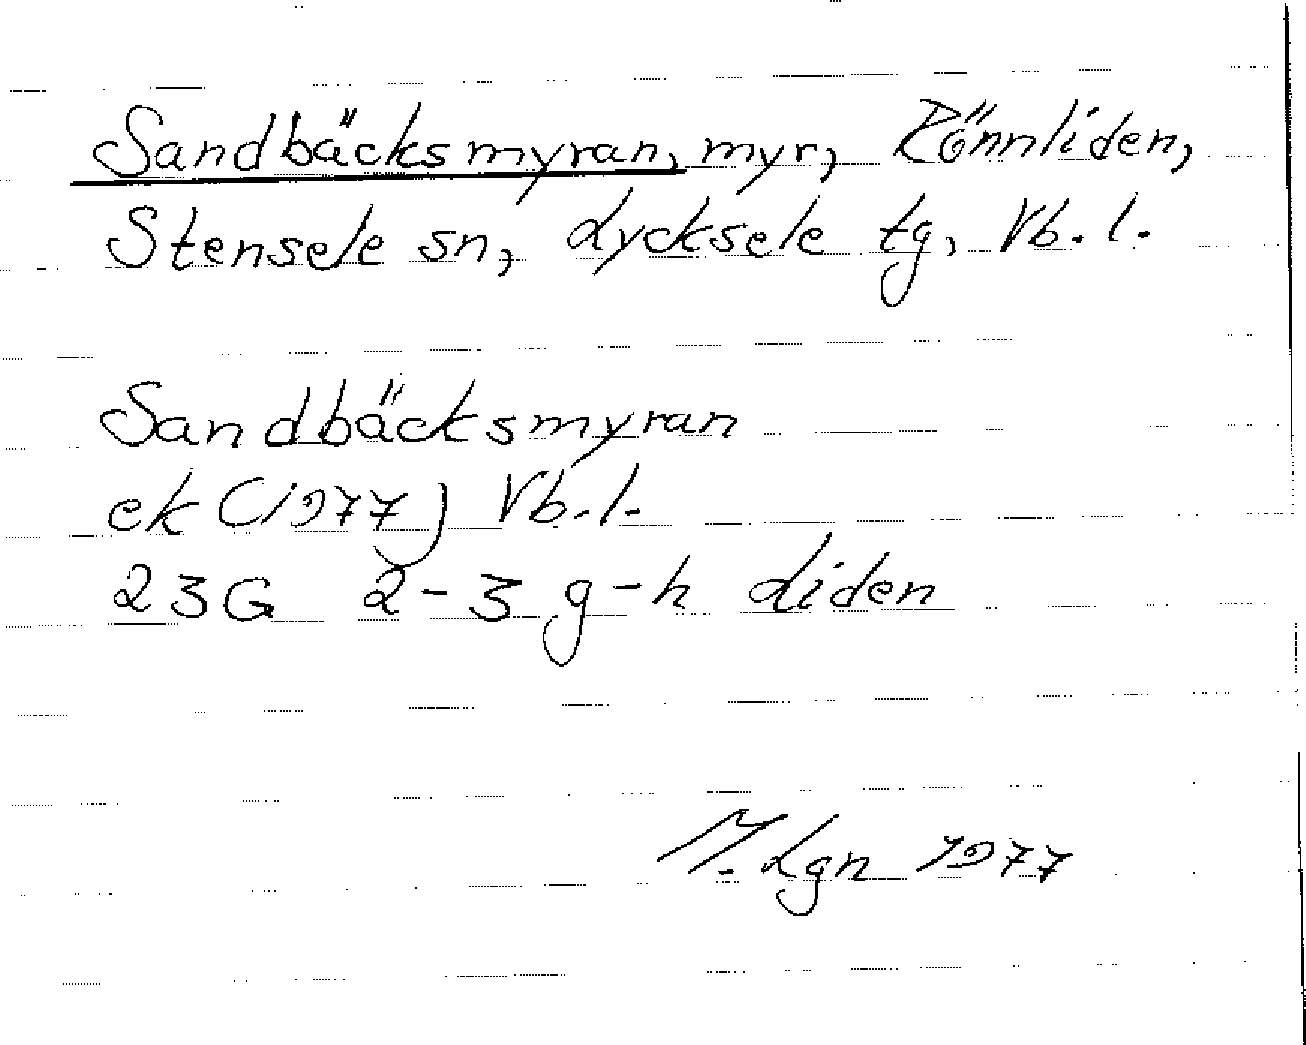 Sandbäcksmyran, myr, Rönnliden,
Stensele sn, Lycksele tg, Vb. l.
Sandbäcksmyran
ek (1977) Vb. l.
23G 2-3 g-h Liden
M. Lgn 1977